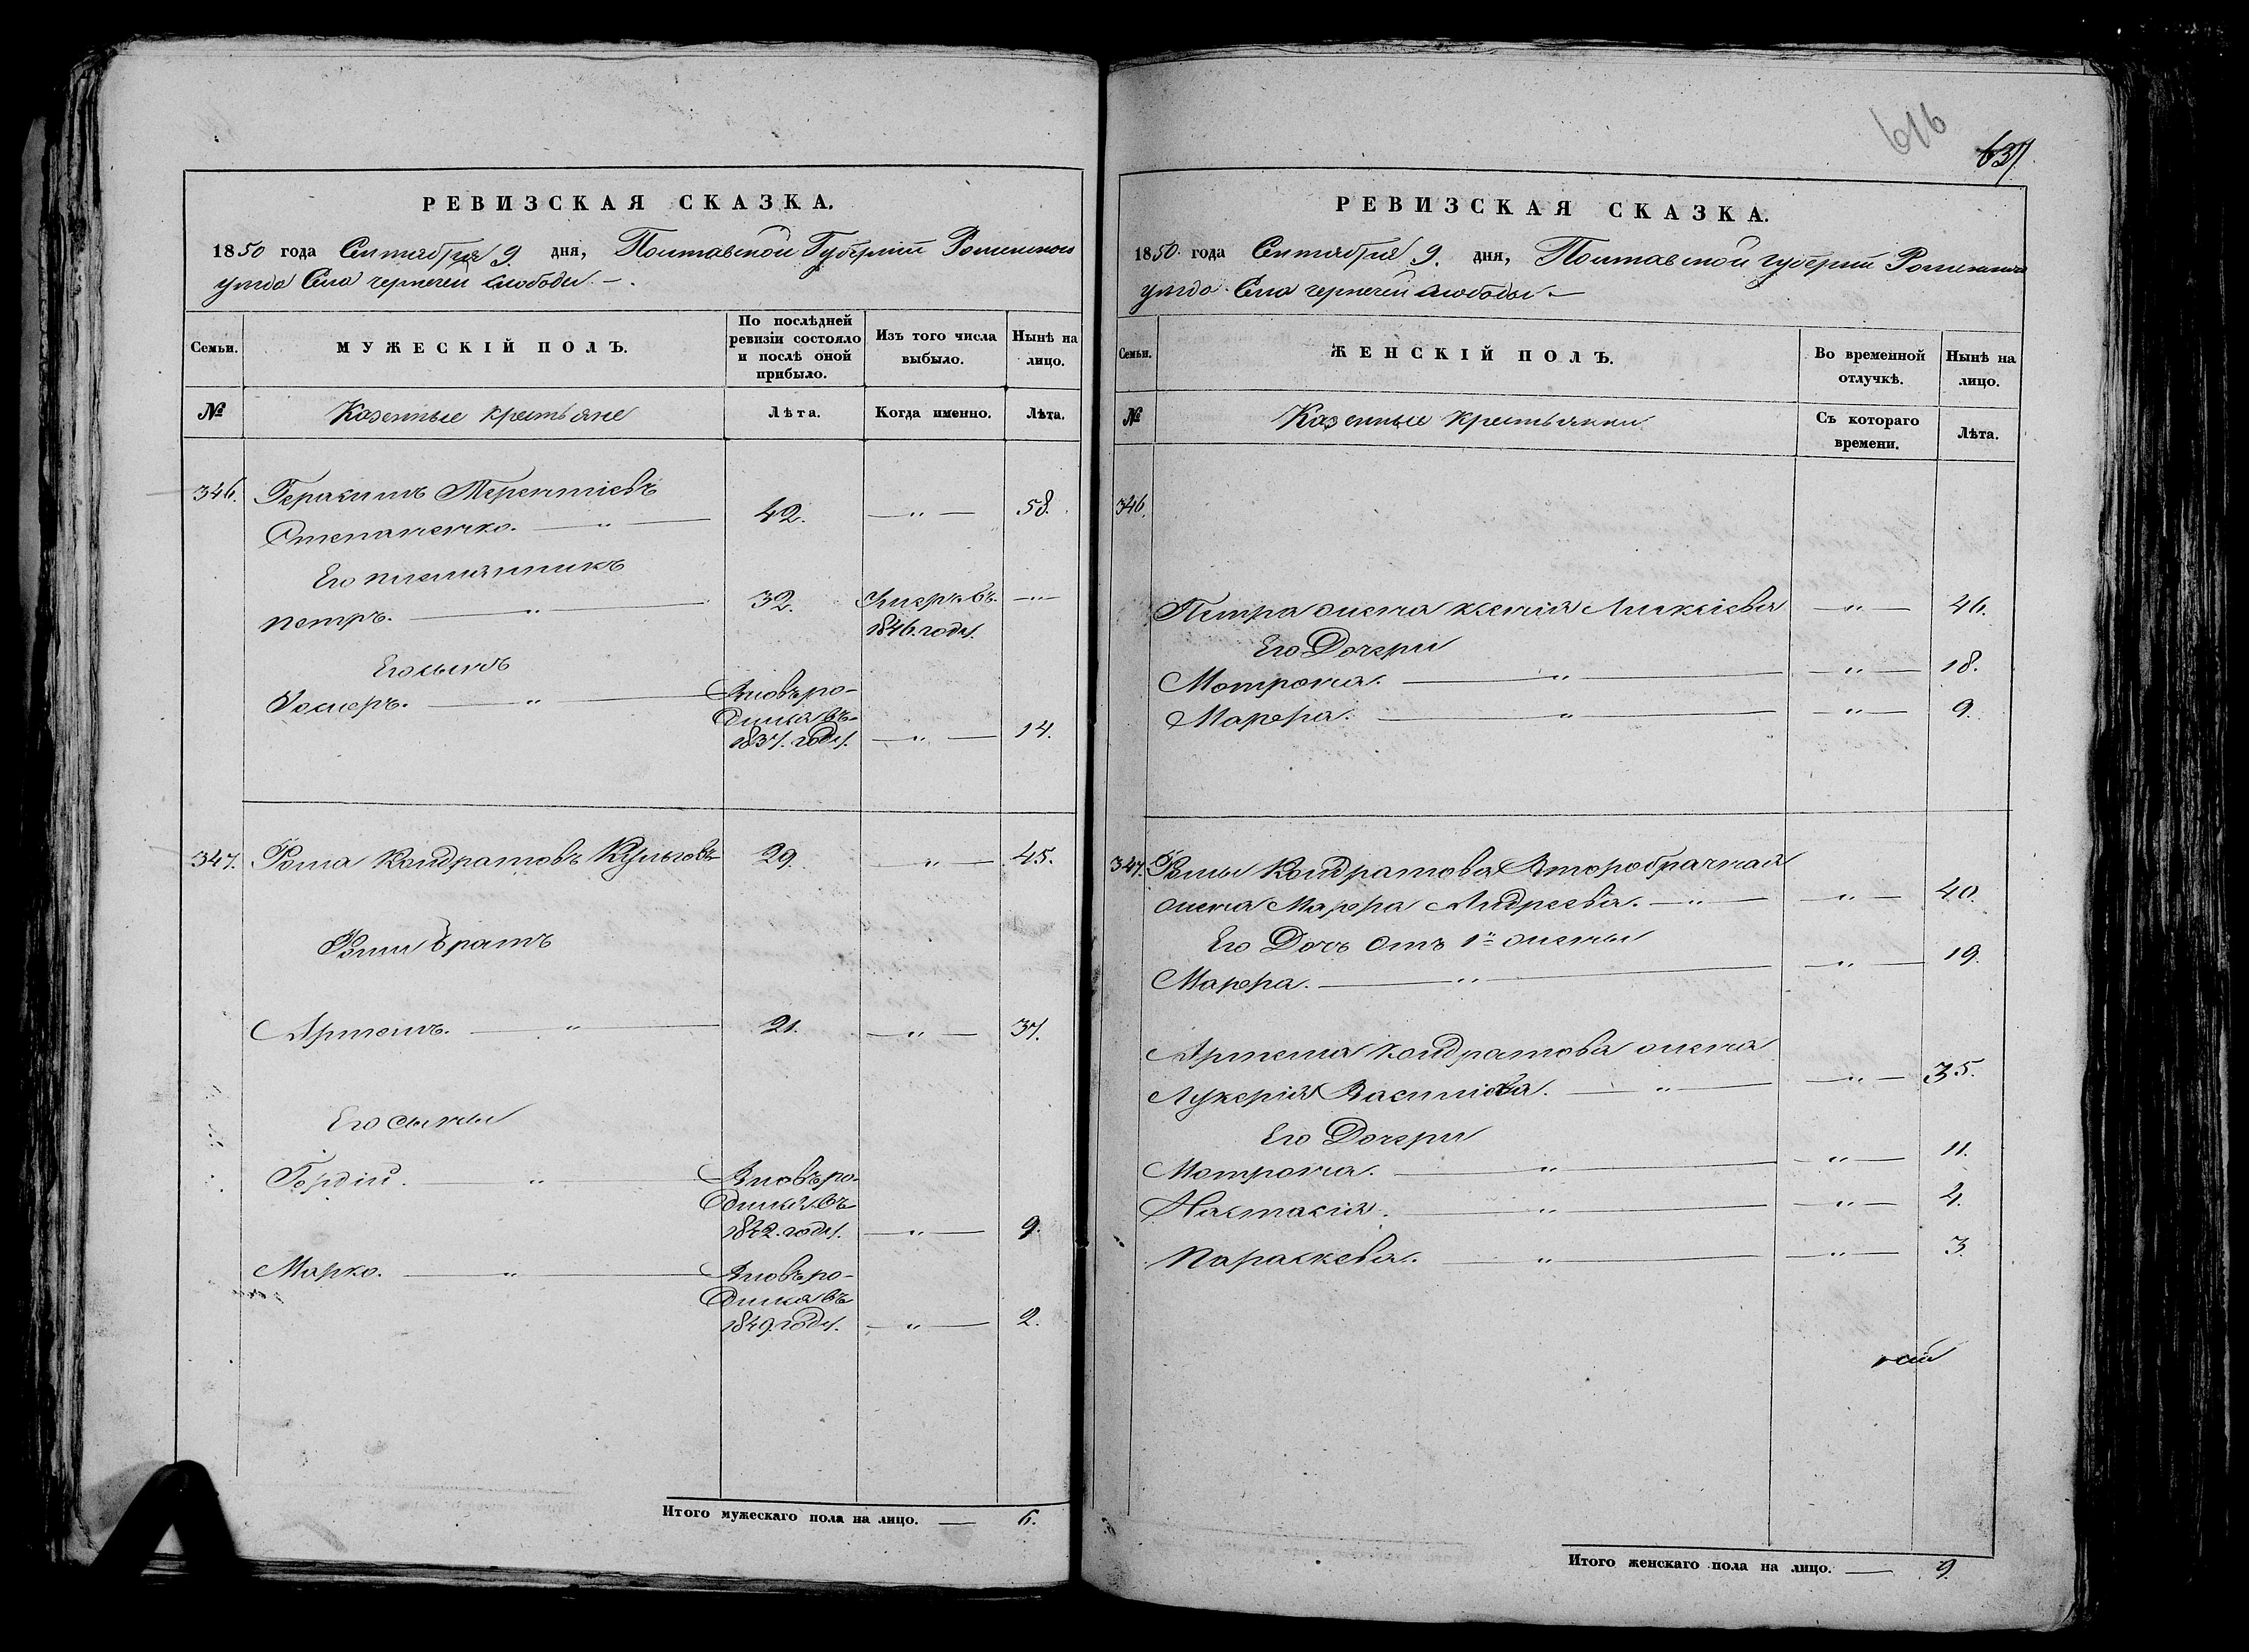 РЕВИЗСКАЯ СКАЗКА.
1850 года Сентября 9 дня, Полтавской Губерніи Роменского
уезда Села черпечей слободы. —
Семьи.
МУЖЕСКІЙ ПОЛЪ.
По послѣдней
ревизіи состояло
и послѣ оной
прибыло.
Изъ того числа
выбыло.
Нынѣ на
лицо.
№
Казенные крестьяне
Лѣта.
Когда именно.
Лѣта.
346. Терентіевъ
Степаненко. — „ — 42. — „ — 58.
Его племянникъ
петръ. — „ — 32. Умеръ въ — „ —
1846. году.
Его сынъ
— „ — Вновь ро-
дился въ
1837. году. — „ — 14.
347. Фома Кондратовъ 29. — „ — 45.
Фомы братъ
Артемъ. — „ — 21. — „ — 37.
Его сыны
Гордій. — „ — Вновь ро-
дился въ
1842. году. — „ — 9.
Марко. — „ — Вновь ро-
дился въ
1849. году. — „ — 2.
Итого мужескаго пола на лицо. — 6.
616
637.
РЕВИЗСКАЯ СКАЗКА.
1850. года Сентября 9. дня, Полтавской губерніи Роменского
уезда Села черпечей слободы —
Семьи.
ЖЕНСКІЙ ПОЛЪ.
Во временной
отлучкѣ.
Нынѣ на
лицо.
№
Казенные Крестьянки
Съ котораго
времени.
Лѣта.
346.
Петра жена ксенія Алексіева — „ — 46.
Его Дочери
Мотрона. — „ — — „ — 18.
Марфа. — „ — — „ — 9.
347. Фомы Кондратова Второбрачная
жена Марфа Андреева. — „ — — „ — 40.
Его Дочь отъ 1й жены
Марфа. — „ — — „ — 19.
Артема Кондратова жена
Лукерія Василіева. — „ — — „ — 35.
Его Дочери
Мотрона. — „ — — „ — 11.
Настасія. — „ — — „ — 4.
Параскева. — „ — — „ — 3.
Итого женскаго пола на лицо. — 9.